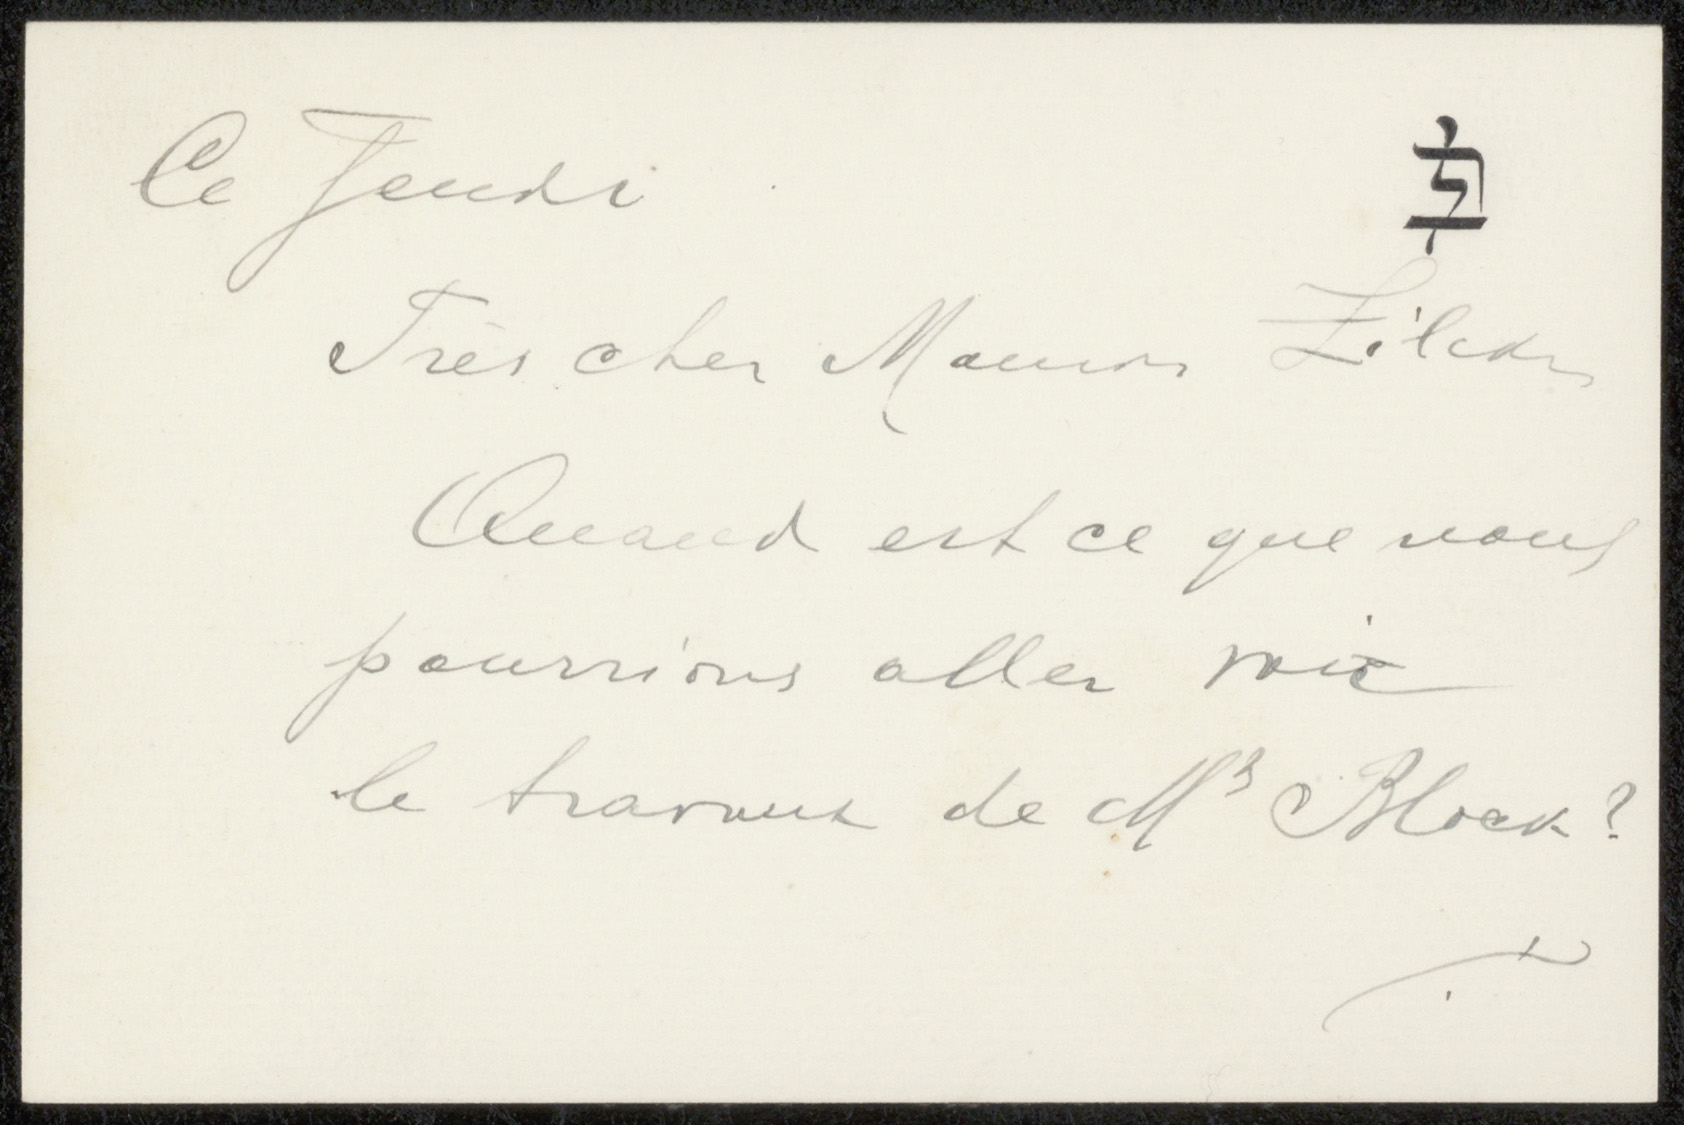 Ce Jeudi
Très cher Zilcken
Quand est ce que nous
pourrions aller voir
le travaux de Mr Block?